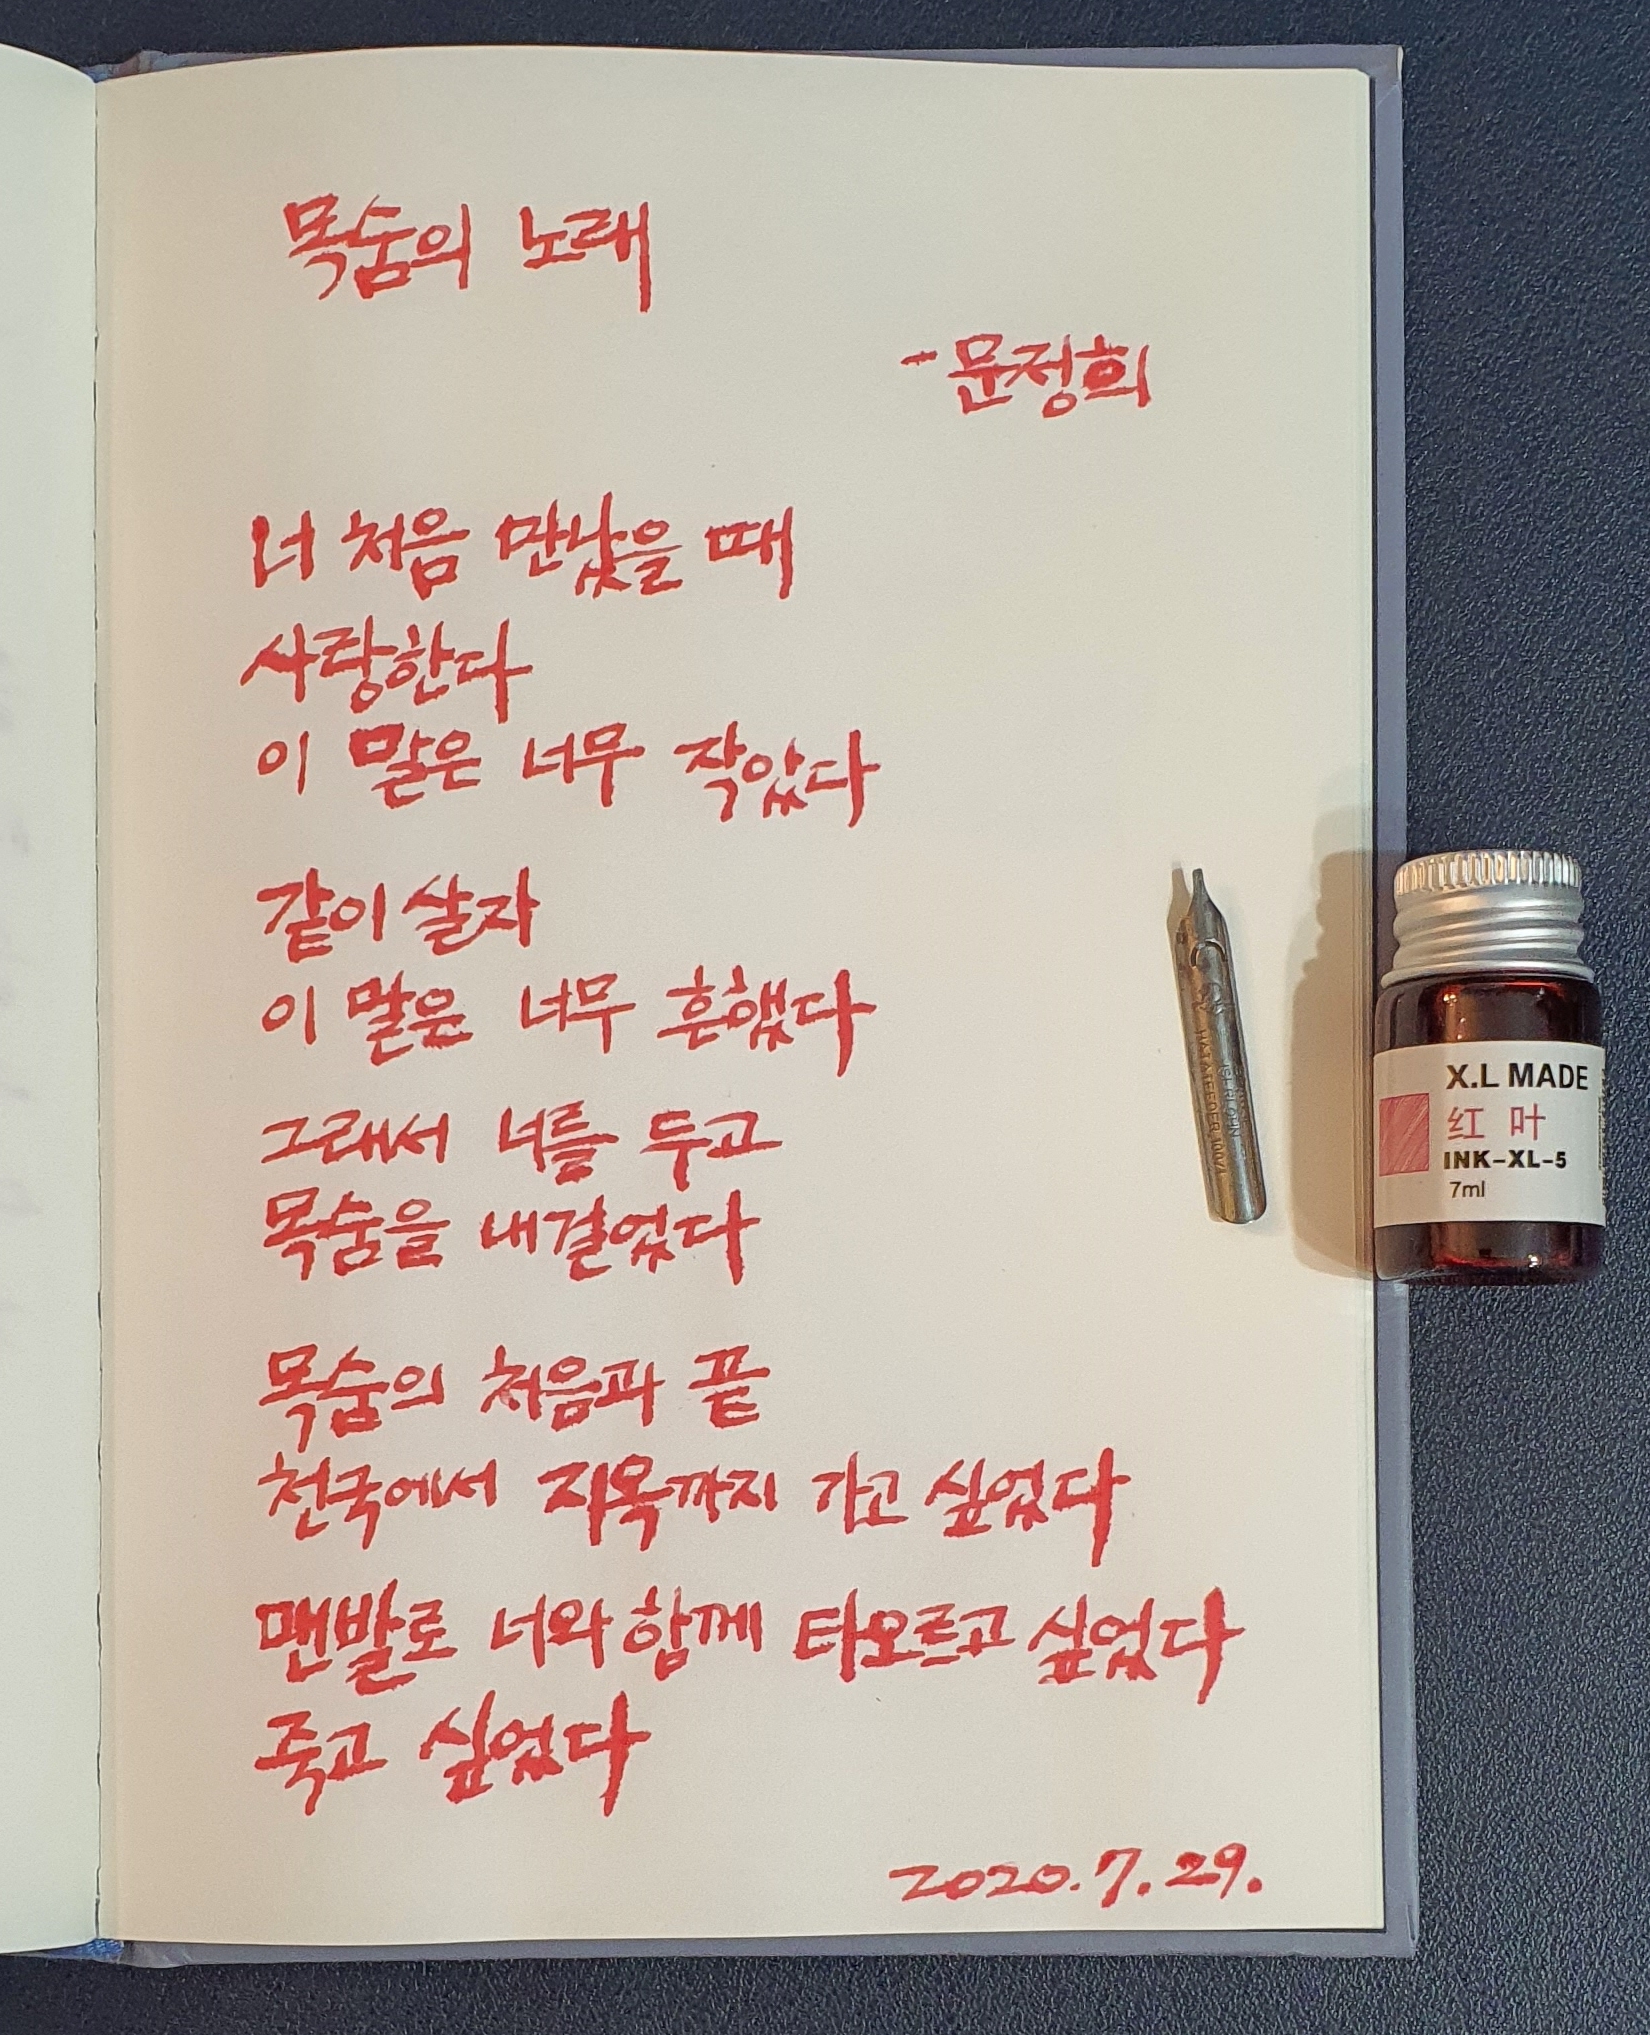 목숨의 노래
-문정희
너 처음 만났을 때
사랑한다
이 말은 너무 작았다
같이 살자
이 말은 너무 흔했다
그래서 너를 두고
목숨을 내걸었다
목숨의 처음과 끝
천국에서 지옥까지 가고 싶었다
맨발로 너와 함께 타오르고 싶었다
죽고 싶었다
2020.7.29.
X.L MADE
红叶
INK-XL-5
7ml